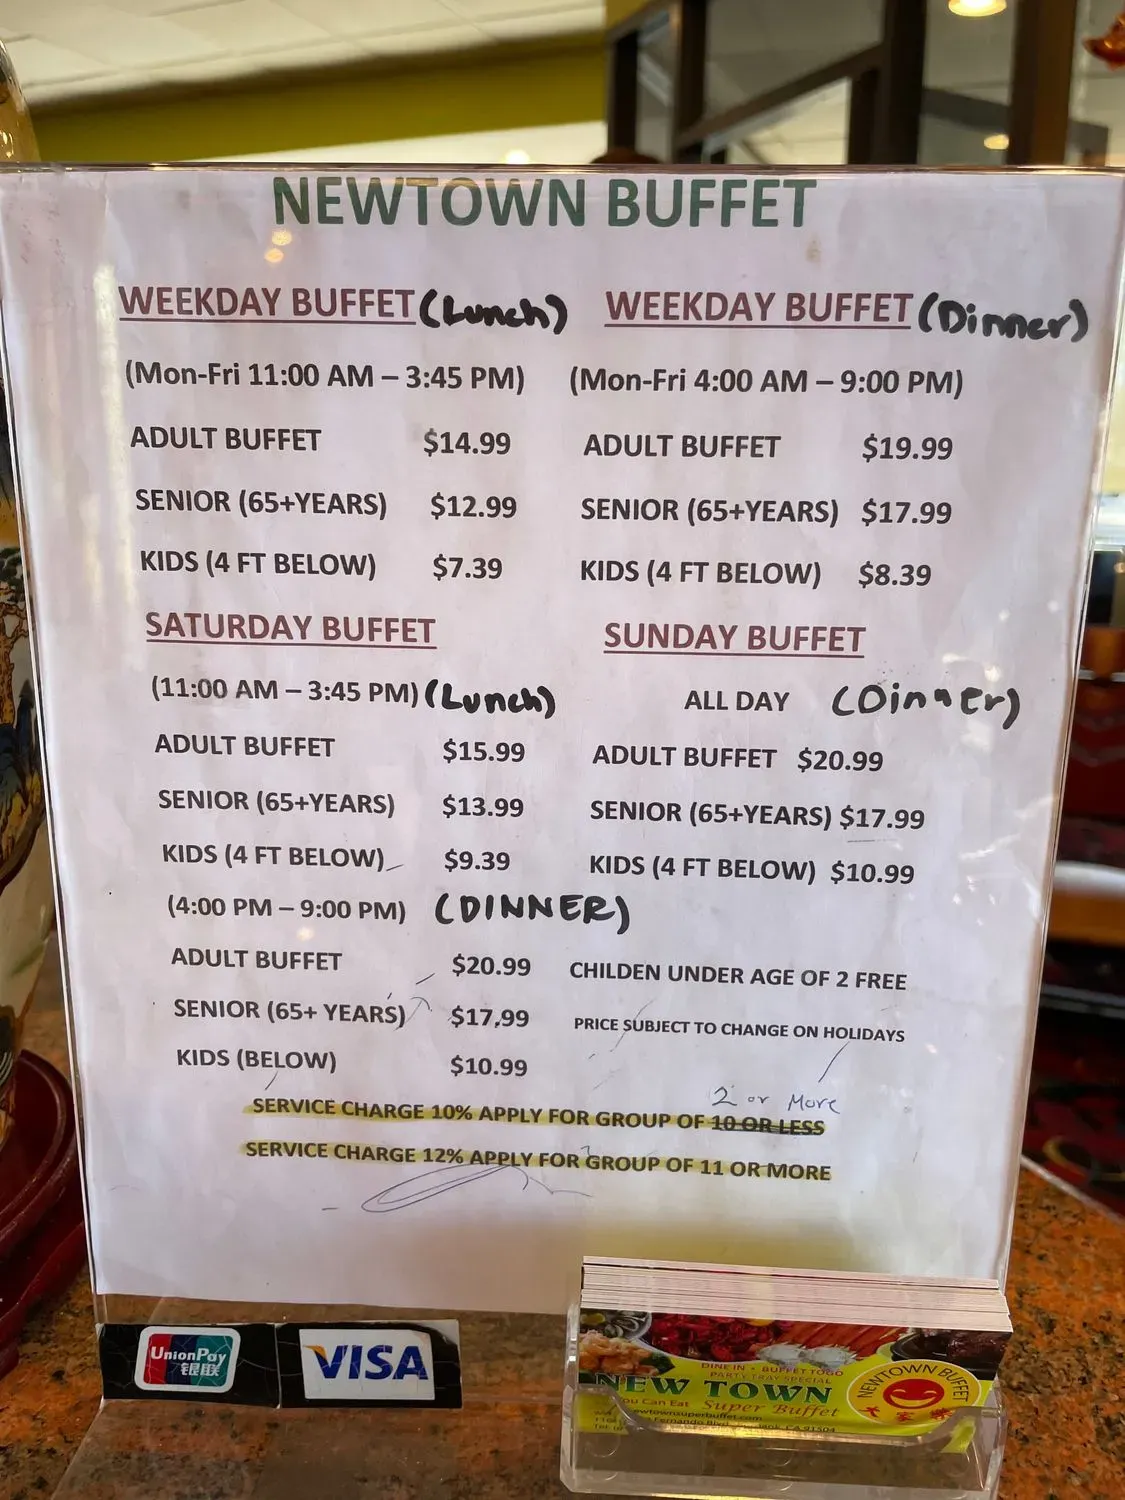 NEWTOWN BUFFET
WEEKDAY BUFFET (Lunch)
(Mon-Fri 11:00 AM – 3:45 PM)
ADULT BUFFET $14.99
SENIOR (65+YEARS) $12.99
KIDS (4 FT BELOW) $7.39
WEEKDAY BUFFET (Dinner)
(Mon-Fri 4:00 AM – 9:00 PM)
ADULT BUFFET $19.99
SENIOR (65+YEARS) $17.99
KIDS (4 FT BELOW) $8.39
SATURDAY BUFFET
(11:00 AM – 3:45 PM) (Lunch)
ADULT BUFFET $15.99
SENIOR (65+YEARS) $13.99
KIDS (4 FT BELOW) $9.39
(4:00 PM – 9:00 PM) (DINNER)
ADULT BUFFET $20.99
SENIOR (65+ YEARS) $17.99
KIDS (BELOW) $10.99
SUNDAY BUFFET
ALL DAY (Dinner)
ADULT BUFFET $20.99
SENIOR (65+YEARS) $17.99
KIDS (4 FT BELOW) $10.99
CHILDEN UNDER AGE OF 2 FREE
PRICE SUBJECT TO CHANGE ON HOLIDAYS
2 or More
SERVICE CHARGE 10% APPLY FOR GROUP OF 10 OR LESS
SERVICE CHARGE 12% APPLY FOR GROUP OF 11 OR MORE
UnionPay
银联
VISA
DINE IN • BUFFET TO GO
PARTY TRAY SPECIAL
NEW TOWN
You Can Eat Super Buffet
newtownsuperbuffet.com
Fernando Blvd. CA 91504
NEWTOWN BUFFET
大家樂